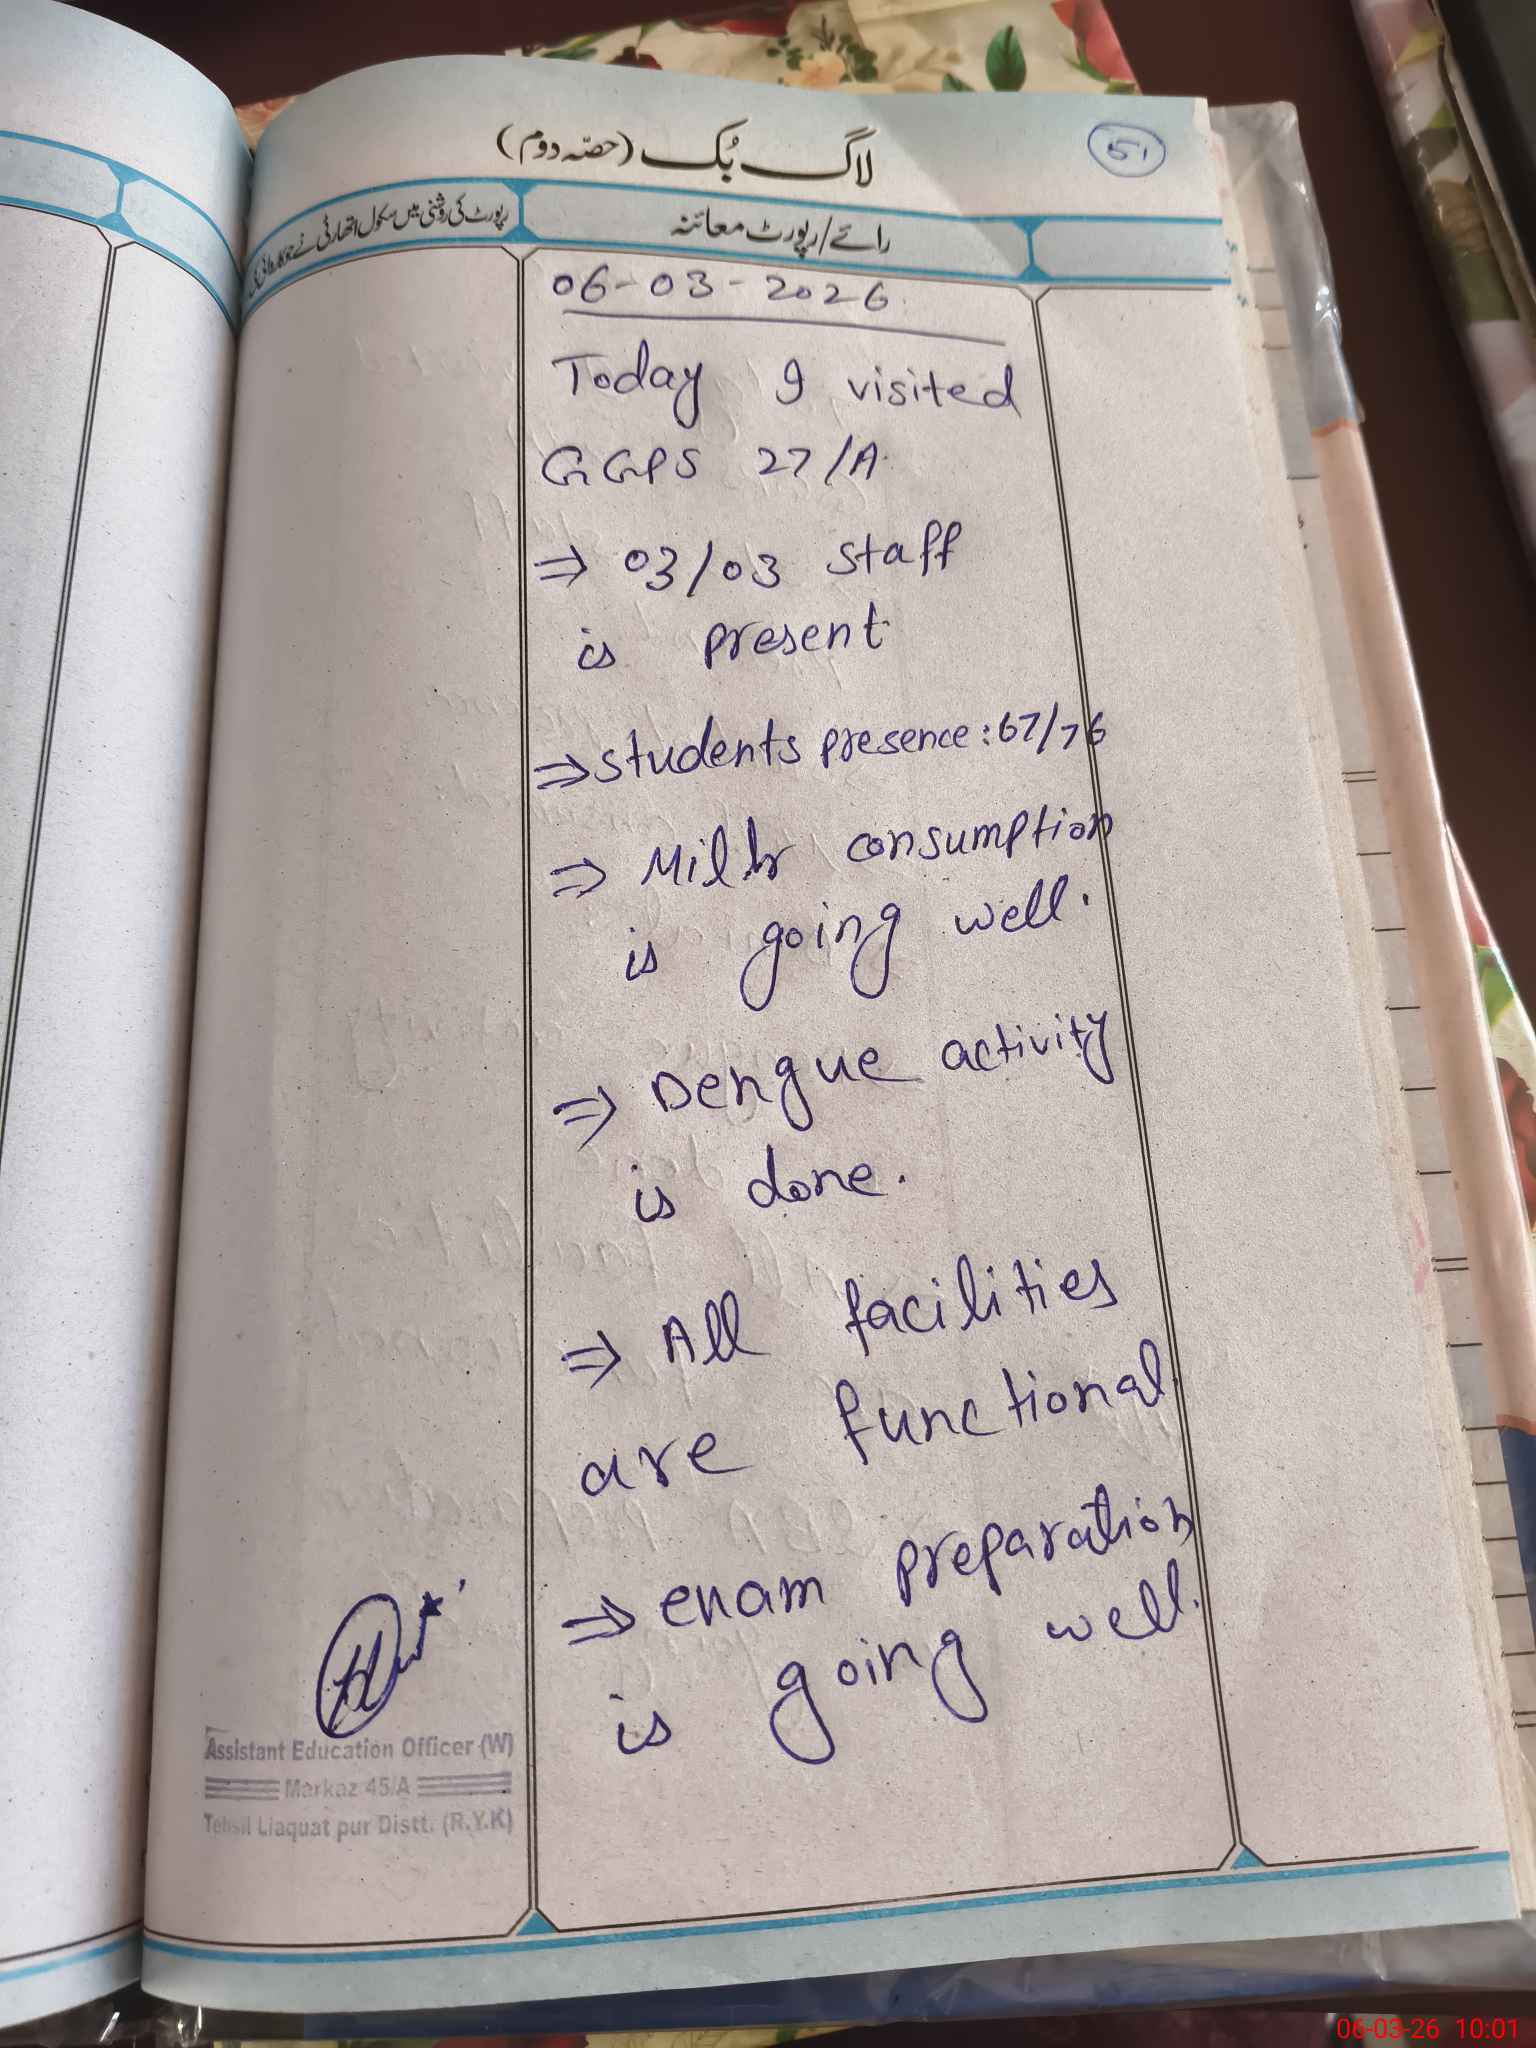 لاگ بُک (حصّہ دوم)
51
رپورٹ کی روشنی میں سکول اتھارٹی نے جو کاروائی کی
رائے/رپورٹ معائنہ
06-03-2026
Today I visited
GGPS 27/A
⇒ 03/03 staff
is present
⇒ students presence: 67/76
⇒ Milk consumption
is going well.
⇒ Dengue activity
is done.
⇒ All facilities
are functional.
⇒ enam preparation
is going well.
Assistant Education Officer (W)
Markaz 45/A
Tehsil Liaquat pur Distt. (R.Y.K)
06-03-26 10:01